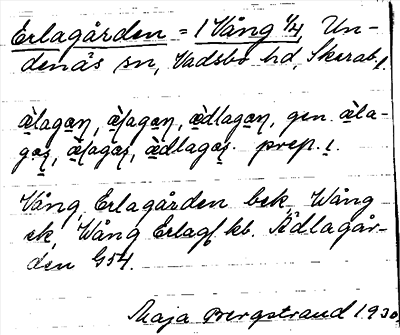 Erlagården = 1 Vång 1/4, Un-
denäs sn, Vadsbo hd, Skarab. l.
æ̀lagaɳ, æ̀ɽagaɳ, æ̀dlagaɳ, gen. æ̀la-
gaʂ, æ̀ɽagaʂ, æ̀dlagaʂ. prep. i.
Vång, Erlagården bek. Wång
ek, Wång Erlag kb. Ädlagår-
den G54.
Maja Bergstrand 1930